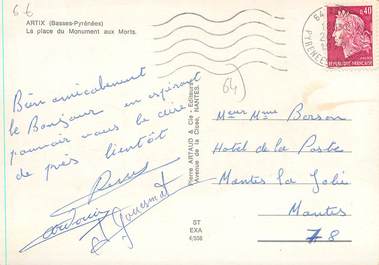 6€
ARTIX (Basses-Pyrénées)
La place du Monument aux Morts.
64
0,40
REPUBLIQUE FRANÇAISE
Bien amicalement
le Bonjour en espérant
pouvoir vous le dire
de près bientôt
64)
Pierre ARTAUD & Cie - Editeurs
Avenue de la Close, NANTES.
GT
EXA
Mme Bosson
Hotel de la Poste
Mantes la Jolie
Mantes
78